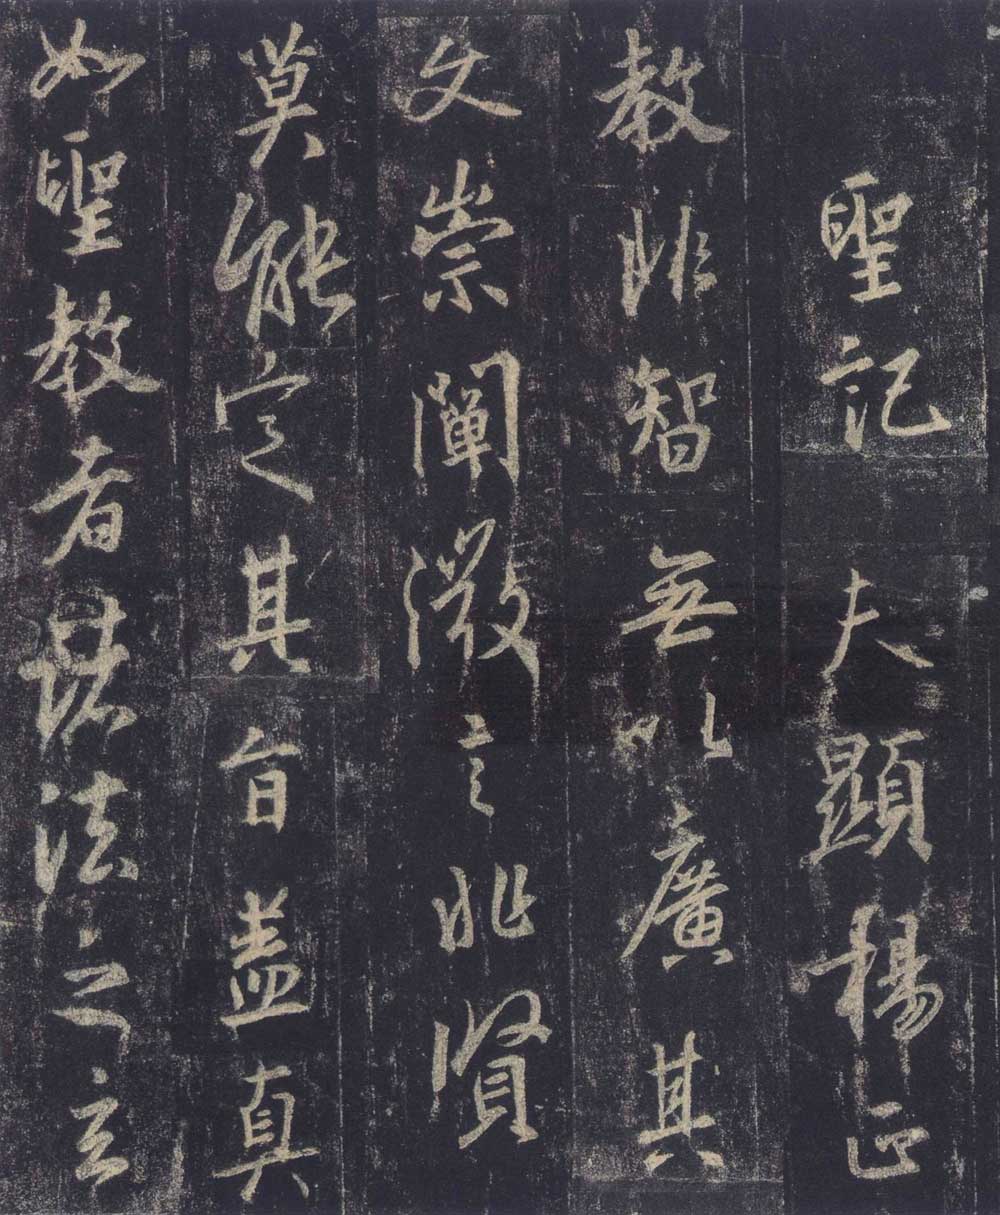 聖記 夫顯楊正
教非智無以廣其
文崇闡微言非賢
莫能定其旨盖真
如聖教者諸法之玄